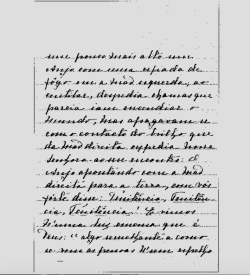 um pouco mais alto um
Anjo com uma espada de
fôgo em a mão esquerda; ao
centilar, despedia chamas que
parecia iam encendiar o
mundo; mas apagavam-se
com o contacto do brilho que
da mão direita expedia Nossa
Senhora ao seu encontro: O
Anjo apontando com a mão
direita para a terra, com vós
forte disse: Penitência, Peniten-
cia, Penitência! E vimos
n'uma luz emensa que é
Deus: "algo semelhante a como
se vem as pessoas n'um espelho